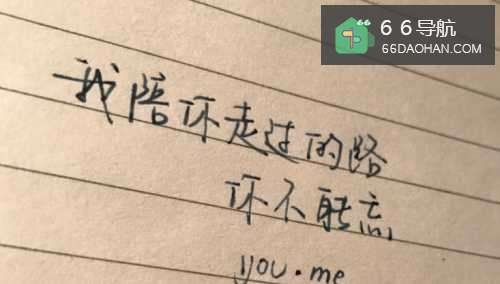 66导航
66DAOHAN.COM
我陪你走过的路
你不能忘
you.me